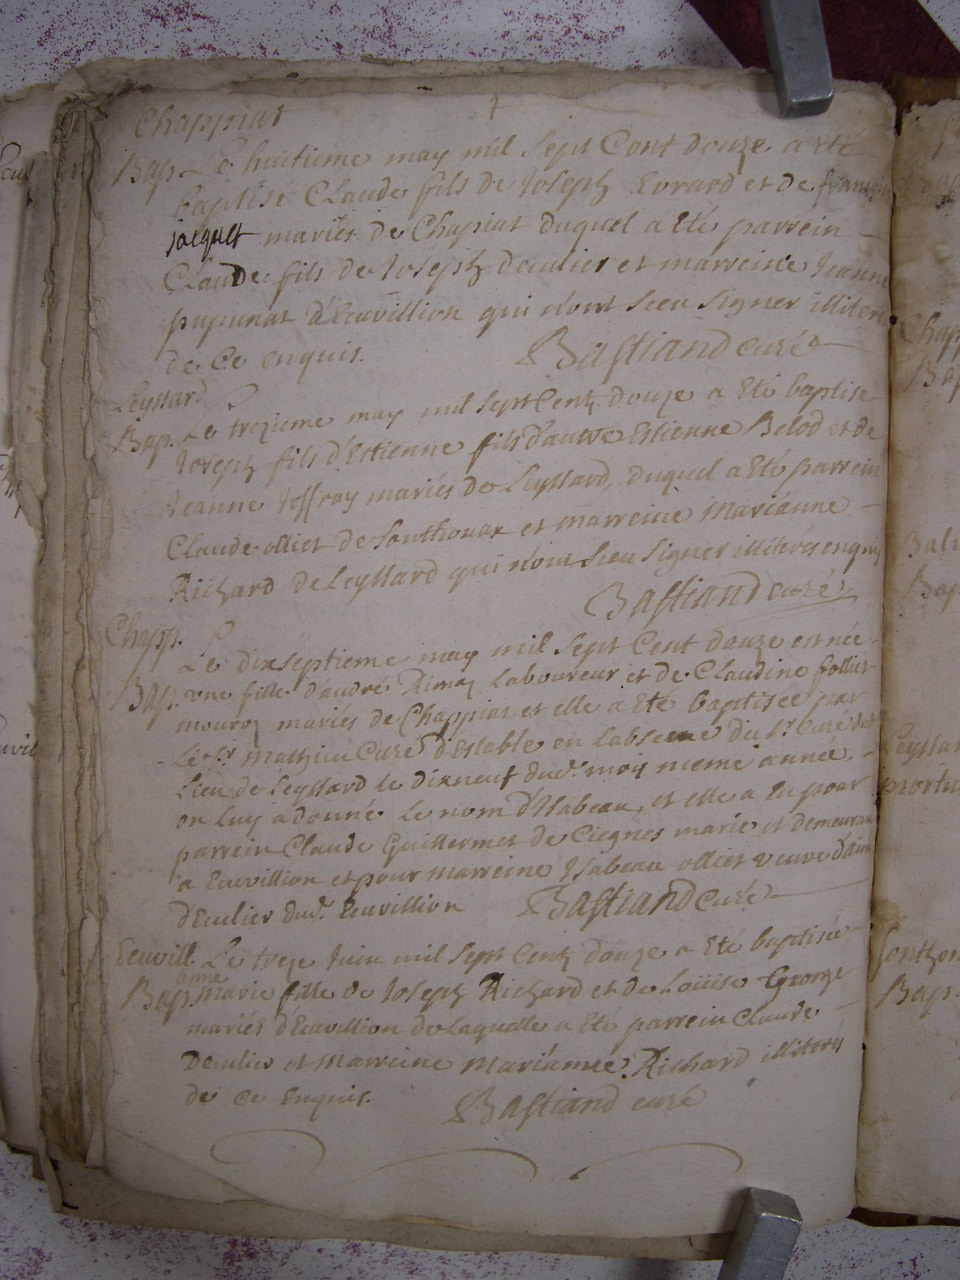 Chappiat
Bap. Le huitieme may mil sept Cent douze a eté
baptisé Claude fils de Joseph Evrard et de françoise
jacquet mariés de Chapiat duquel a eté parrein
Claude fils de Joseph Deculier et marreine Jeanne
pupunat d'Ecuvillion qui n'ont sceu signer illiterés
de ce enquis. Bastiand curé
Leyssard
Bap. Le trezieme may mil sept Centz douze a eté baptisé
Joseph fils d'Estienne fils d'autre Estienne Belod et de
Jeanne Joffray mariés de Leyssard, duquel a eté parrein
Claude ollier de Sonthonax et marreine Marianne
Richard de Leyssard qui n'ont sceu signer illiterés enquis
Bastiand curé
Chapp. Le dixseptieme may mil sept Cent douze est née
Bap. une fille d'andré laboureur et de Claudine follier
mariés de Chappiat et elle a eté baptisée par
Le sr Mathieu Curé d'Estable en labsence du sr Curé dud
Lieu de Leyssard le dixneuf dud. moy meme année,
on luy a donné le nom d'Isabeau, et elle a eu pour
parrein Claude Guillermet de Ciegnes marié et demeurant
a Ecuvillion et pour marreine Isabeau ollier veuve
Deculier dud. Ecuvillion Bastiand Curé
Ecuvill. Le treze Juin mil sept Centz douze a eté baptisée
anne
Bap. marie fille de Joseph Richard et de Loüise George
mariés d'Ecuvillion de laquelle a eté parrein Claude
Deculier et Marreine Marianne Richard illiterés
de ce enquis. Bastiand curé